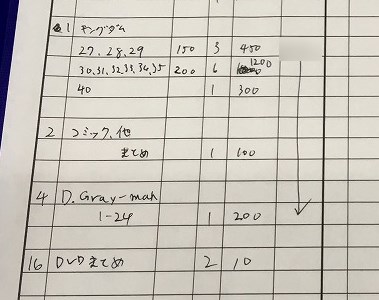 1 キングダム
27, 28, 29 150 3 450
30, 31, 32, 33, 34, 35 200 6 1200
40 1 300
2 コミック、他
まとめ 1 100
4 D. Gray-man
1-24 1 200
16 DVDまとめ 2 10